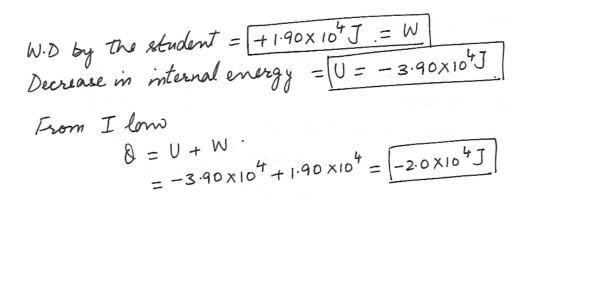 W.D by the student = +1.90 x 10⁴ J .= W
Decrease in internal energy = U = - 3.90x10⁴J
From I law
Q = U + W .
= -3.90x10⁴ + 1.90 x10⁴ = -2.0x10⁴J